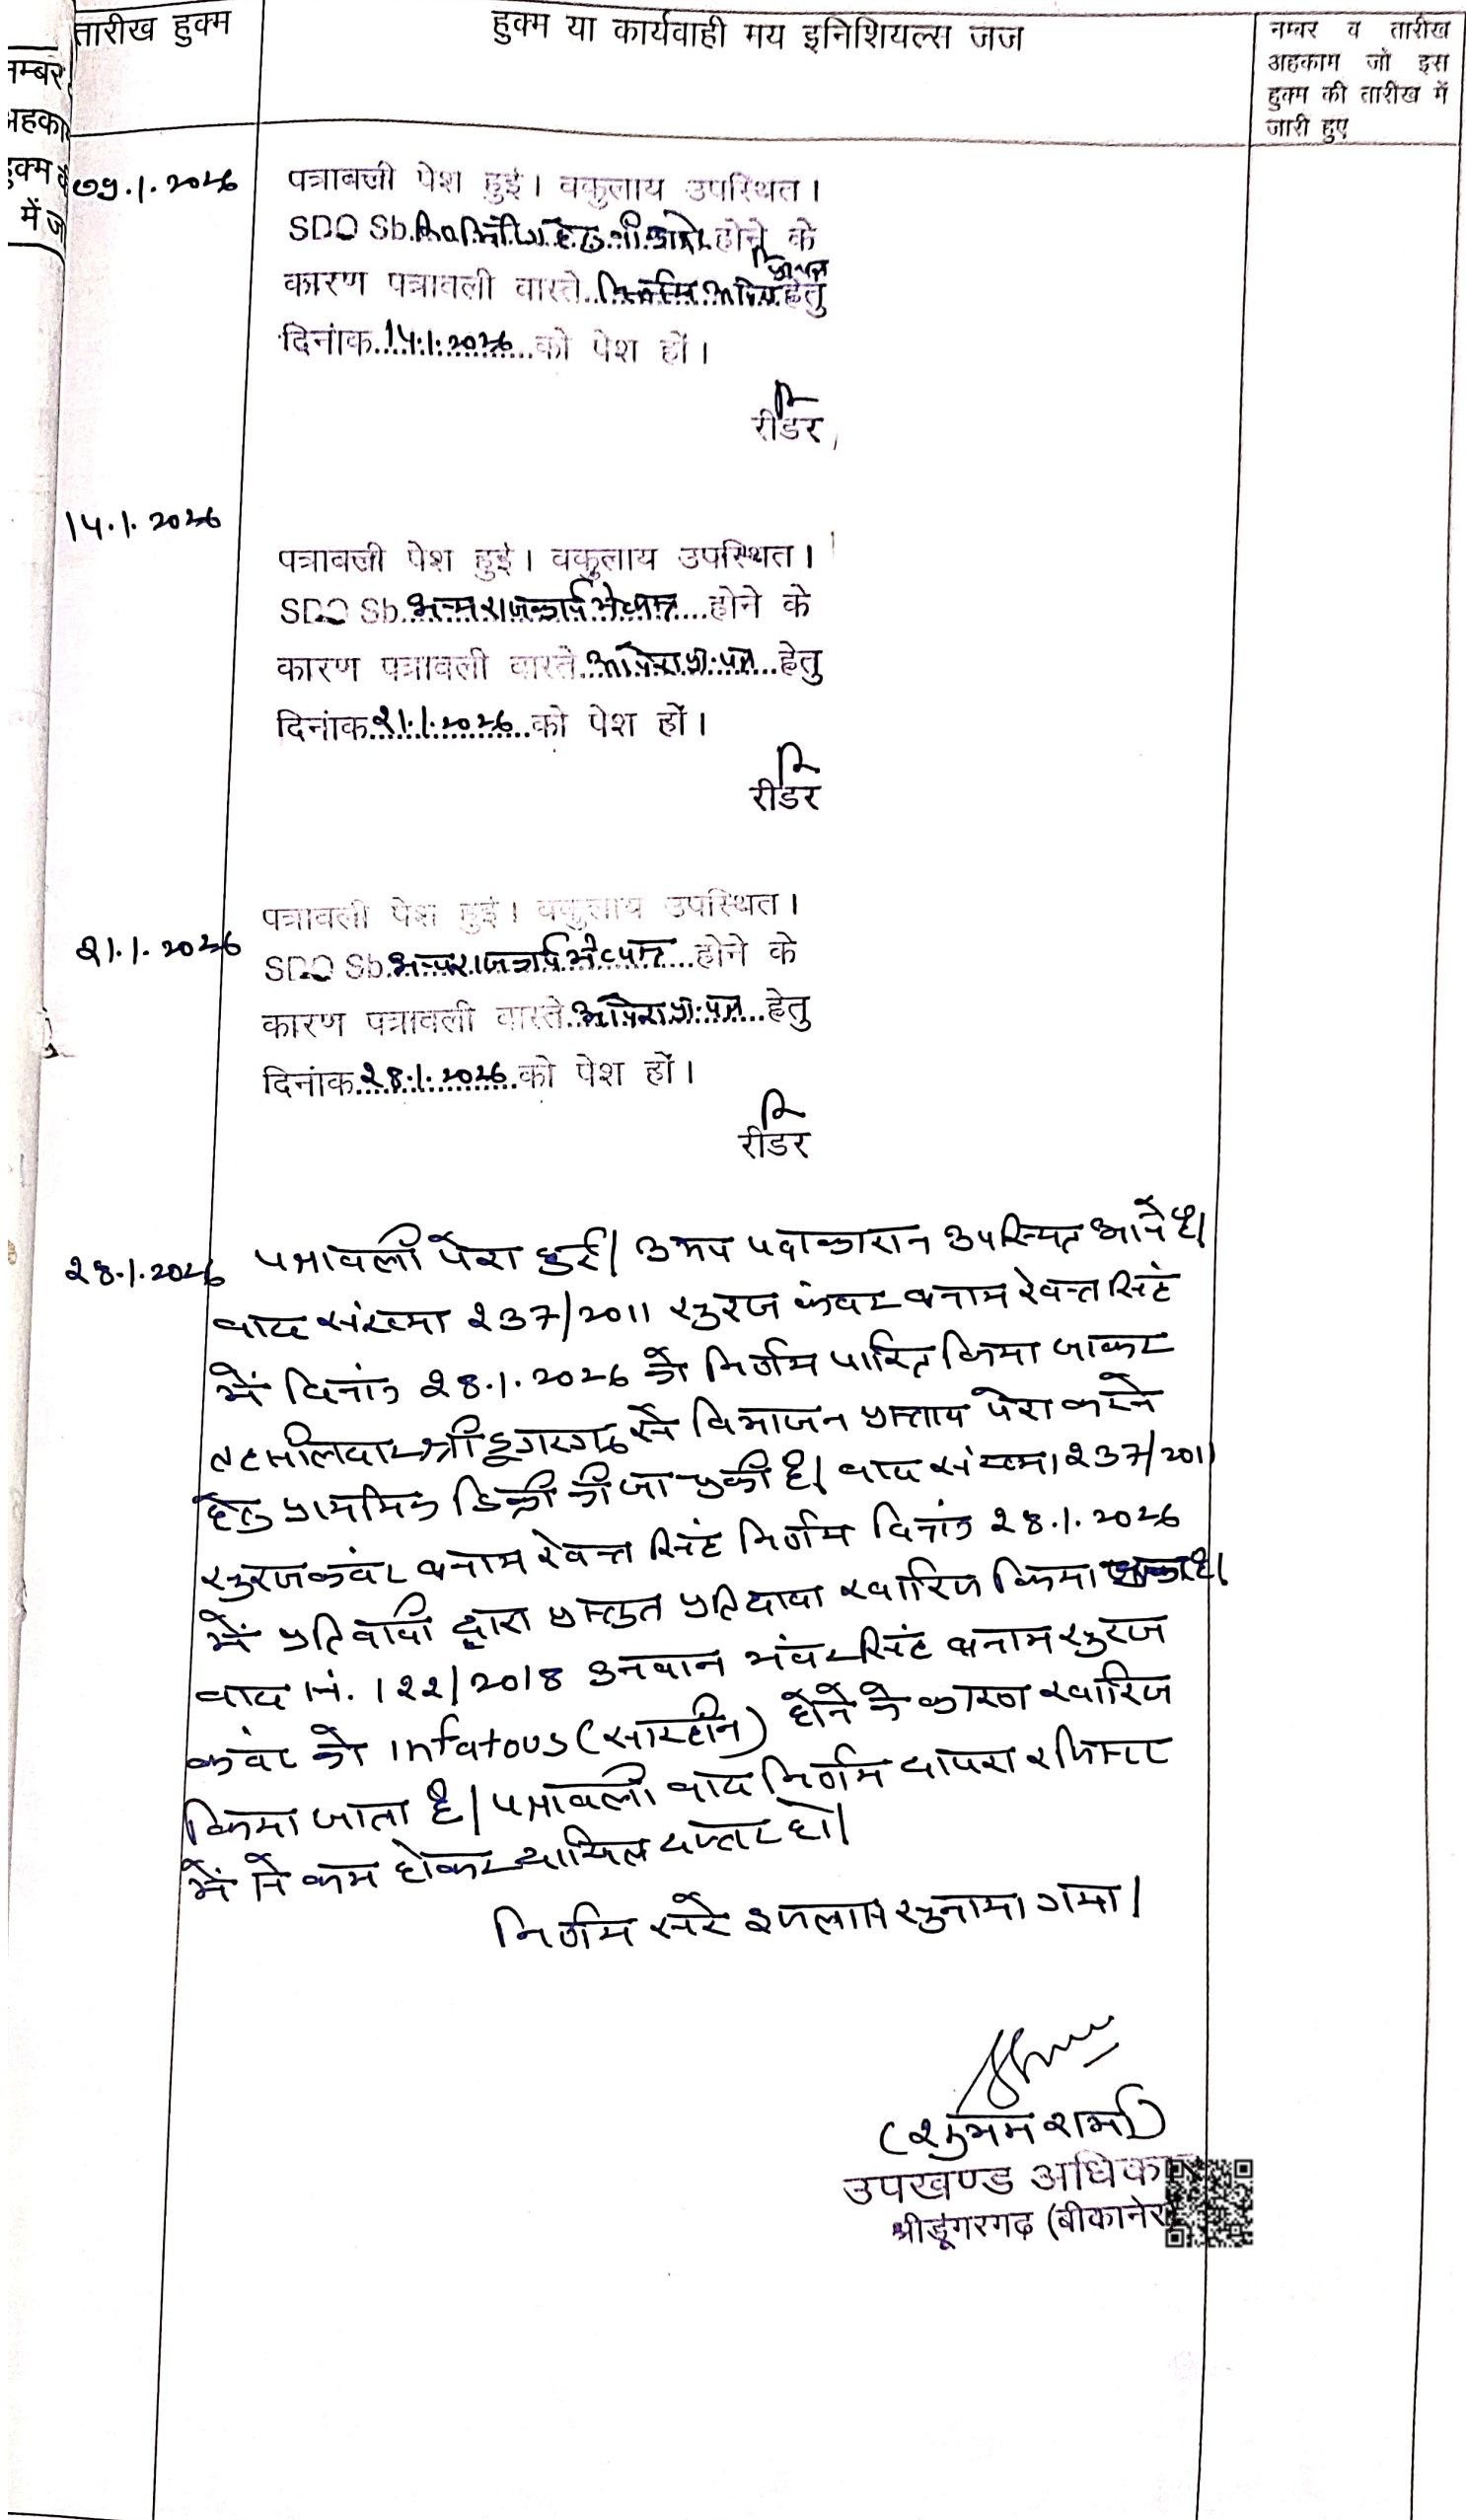 तारीख हुक्म
हुक्म या कार्यवाही मय इनिशियल्स जज
नम्बर व तारीख
अहकाम जो इस
हुक्म की तारीख में
जारी हुए
नम्बर
अहका
हुक्म
में ज
07.1.2026
पत्रावली पेश हुई। वकुलाय उपस्थित।
SDO Sb. होने के
कारण पत्रावली वास्ते हेतु
दिनांक 14.1.2026 को पेश हों।
रीडर
14.1.2026
पत्रावली पेश हुई। वकुलाय उपस्थित।
SDO Sb. अन्य राजकार्य में व्यस्त होने के
कारण पत्रावली वास्ते हेतु
दिनांक 21.1.2026 को पेश हों।
रीडर
21.1.2026
पत्रावली पेश हुई। वकुलाय उपस्थित।
SDO Sb. अन्य राजकार्य में व्यस्त होने के
कारण पत्रावली वास्ते हेतु
दिनांक 28.1.2026 को पेश हों।
रीडर
28.1.2026
पत्रावली पेश हुई। उभय पक्षकारान उपस्थित आये है।
वाद संख्या 237/2011 सुरज कंवर बनाम रेवन्त सिंह
में दिनांक 28.1.2026 को निर्णय पारित किया जाकर
तहसीलदार श्रीडूंगरगढ़ से विभाजन प्रस्ताव पेश करने
हेतु प्राथमिक डिक्री की जा चुकी है। वाद संख्या 237/2011
सुरज कंवर बनाम रेवन्त सिंह निर्णय दिनांक 28.1.2026
में प्रतिवादी द्वारा प्रस्तुत प्रतिदावा खारिज किया है।
वाद नं. 122/2018 उनवान भंवर सिंह बनाम सुरज
कंवर को Infatous (सारहीन) होने के कारण खारिज
किया जाता है। पत्रावली बाद निर्णय दायरा रजिस्टर
में से कम होकर दाखिल दफ्तर हो।
निर्णय सरे इजलास सुनाया गया।
(शुभम शर्मा)
उपखण्ड अधिका
श्रीडूंगरगढ़ (बीकानेर)